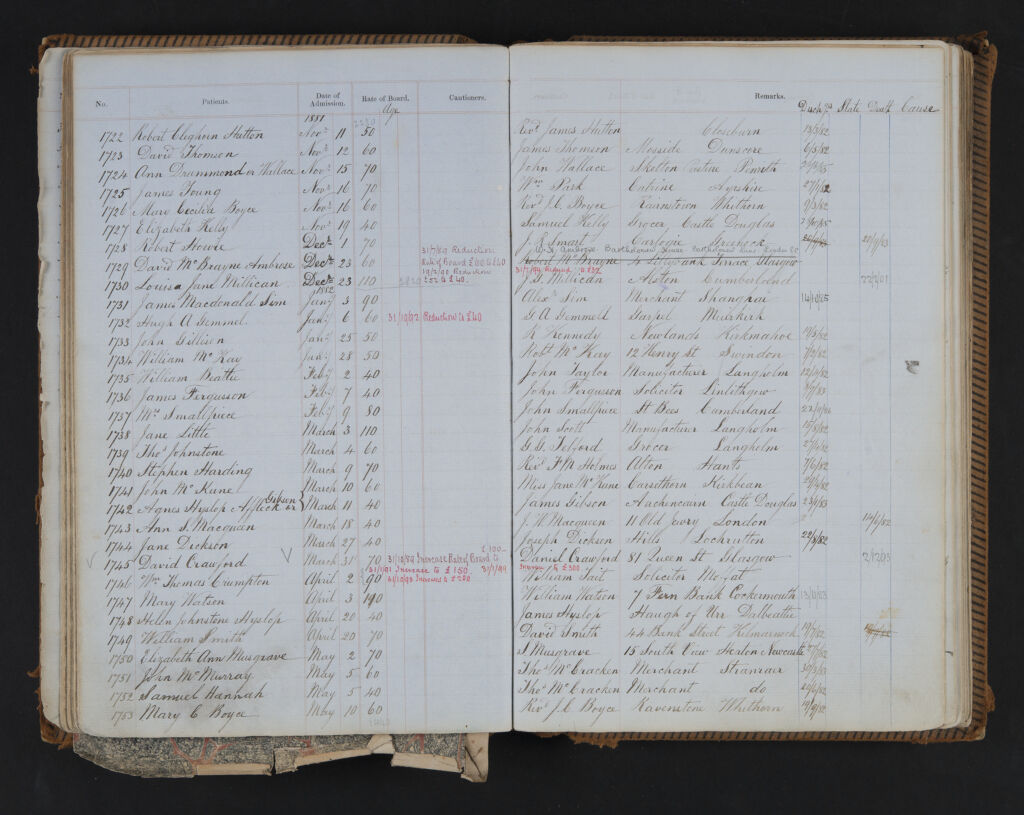 No. Patients. Date of Admission. Rate of Board. Cautioners. Remarks. Disch.gd State Death Cause
Age
1881
1722 Robert Cleghorn Hutton Novr 11 50 Revd James Hutton Closeburn 13/5/82
1723 David Thomson Novr 12 60 James Thomson Mosside Dunscore 6/3/82
1724 Ann Drummond or Wallace Novr 15 70 John Wallace Skelton Penrith
1725 James Young Novr 16 70 Wm Park Catrine Ayrshire 27/1/82
1726 Mary Cecilia Boyce Novr 16 60 Revd J.C. Boyce Whithorn 9/3/82
1727 Elizabeth Kelly Novr 19 40 Samuel Kelly Grocer Castle Douglas
1728 Robert Howie Decr 1 70 J. R. Smart Greenock
31/7/89 Reduction
Rate of Board £60 to £40
1729 David McBrayne Ambrose Decr 23 60 Robert McBrayne Terrace Glasgow
19/2/90 Reduction
1730 Louisa Jane Millican Decr 23 110 J. G. Millican Alston Cumberland 22/2/01
1882
1731 James Macdonald Sim Jany 3 90 Alexr Sim Merchant Shanghai 14/10/85
1732 Hugh A Gemmel Jany 6 60 31/10/92 Reduction to £40 G A Gemmell Garpel Muirkirk
1733 John Gillison Jany 25 50 R Kennedy Newlands Kirkmahoe 19/3/82
1734 William McKay Jany 28 50 Robt McKay 12 Henry St Swindon 7/2/82
1735 William Beattie Feby 2 40 John Taylor Manufacturer Langholm 12/10/82
1736 James Ferguson Feby 7 40 John Ferguson Solicitor Linlithgow
1737 Mrs Smallpiece Feby 9 80 John Smallpiece St Bees Cumberland
1738 Jane Little March 3 110 John Scott Manufacturer Langholm
1739 Thos Johnstone March 4 60 G. G. Telford Grocer Langholm
1740 Stephen Harding March 9 70 Revd F M Holmes Alton Hants 7/6/82
1741 John McKune March 10 60 Miss Jane McKune Carsethorn Kirkbean
1742 Agnes Hyslop Affleck or Gibson March 11 40 James Gibson Auchencairn Castle Douglas 23/4/83
1743 Ann S Macqueen March 18 40 J. W Macqueen 11 Old Jewry London 14/6/82
1744 Jane Dickson March 27 40 Joseph Dickson Hills Lochrutton 22/5/82
£100
1745 David Crawford March 31 70 31/10/89 Increase Rate of Board to Daniel Crawford 81 Queen St Glasgow 2/2/03
31/7/91 Increase to £150 31/7/99 Increase to £300
1746 Wm Thomas Crumpton April 2 90 31/10/98 Increase to £200 William Tait Solicitor Moffat
1747 Mary Watson April 3 William Watson 7 Fern Bank Cockermouth
1748 Helen Johnstone Hyslop April 20 40 James Hyslop Haugh of Urr Dalbeattie
1749 William Smith April 20 70 David Smith 44 Bank Street Kilmarnock 19/7/82
1750 Elizabeth Ann Musgrave May 2 70 J Musgrave 15 South View Heaton Newcastle
1751 John McMurray May 5 60 Thos McCracken Merchant Stranraer
1752 Samuel Hannah May 5 40 Thos McCracken Merchant do 29/6/82
1753 Mary C Boyce May 10 60 Revd J. C Boyce Ravenstone Whithorn 19/9/82